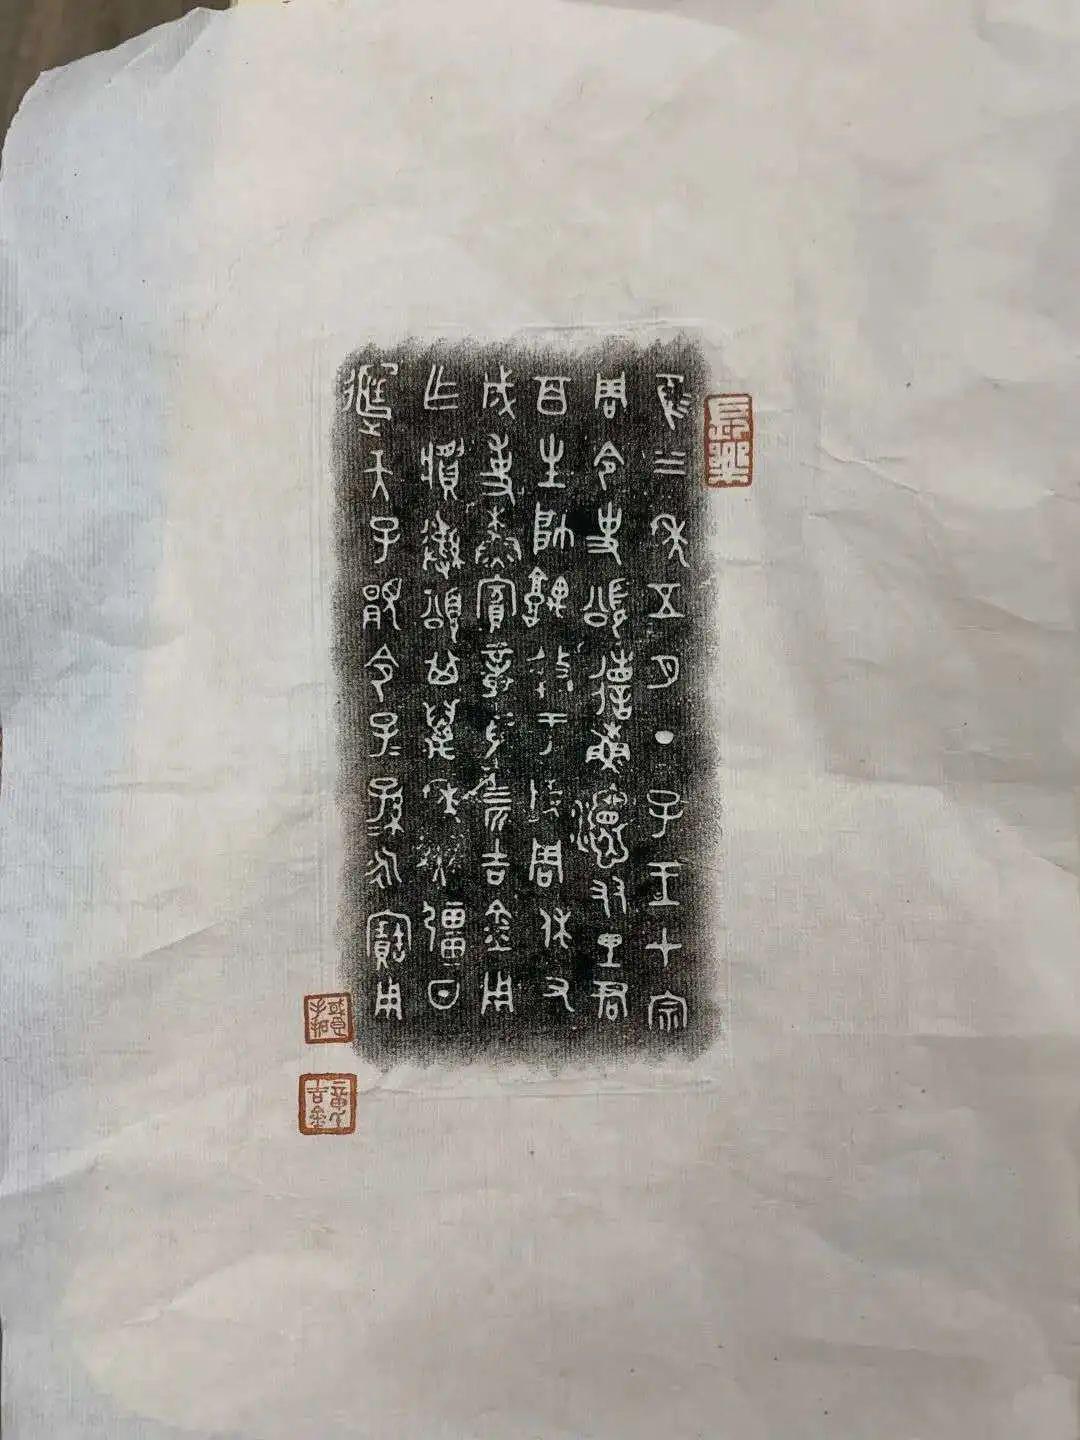 隹三年五月丁子王才宗
周令史頌省穌友里君
百生帥盩于成周休又
成事穌賓章馬三匹吉金用
乍䵼彝頌其萬年無彊日
天子令子子孫孫永寶用
長樂